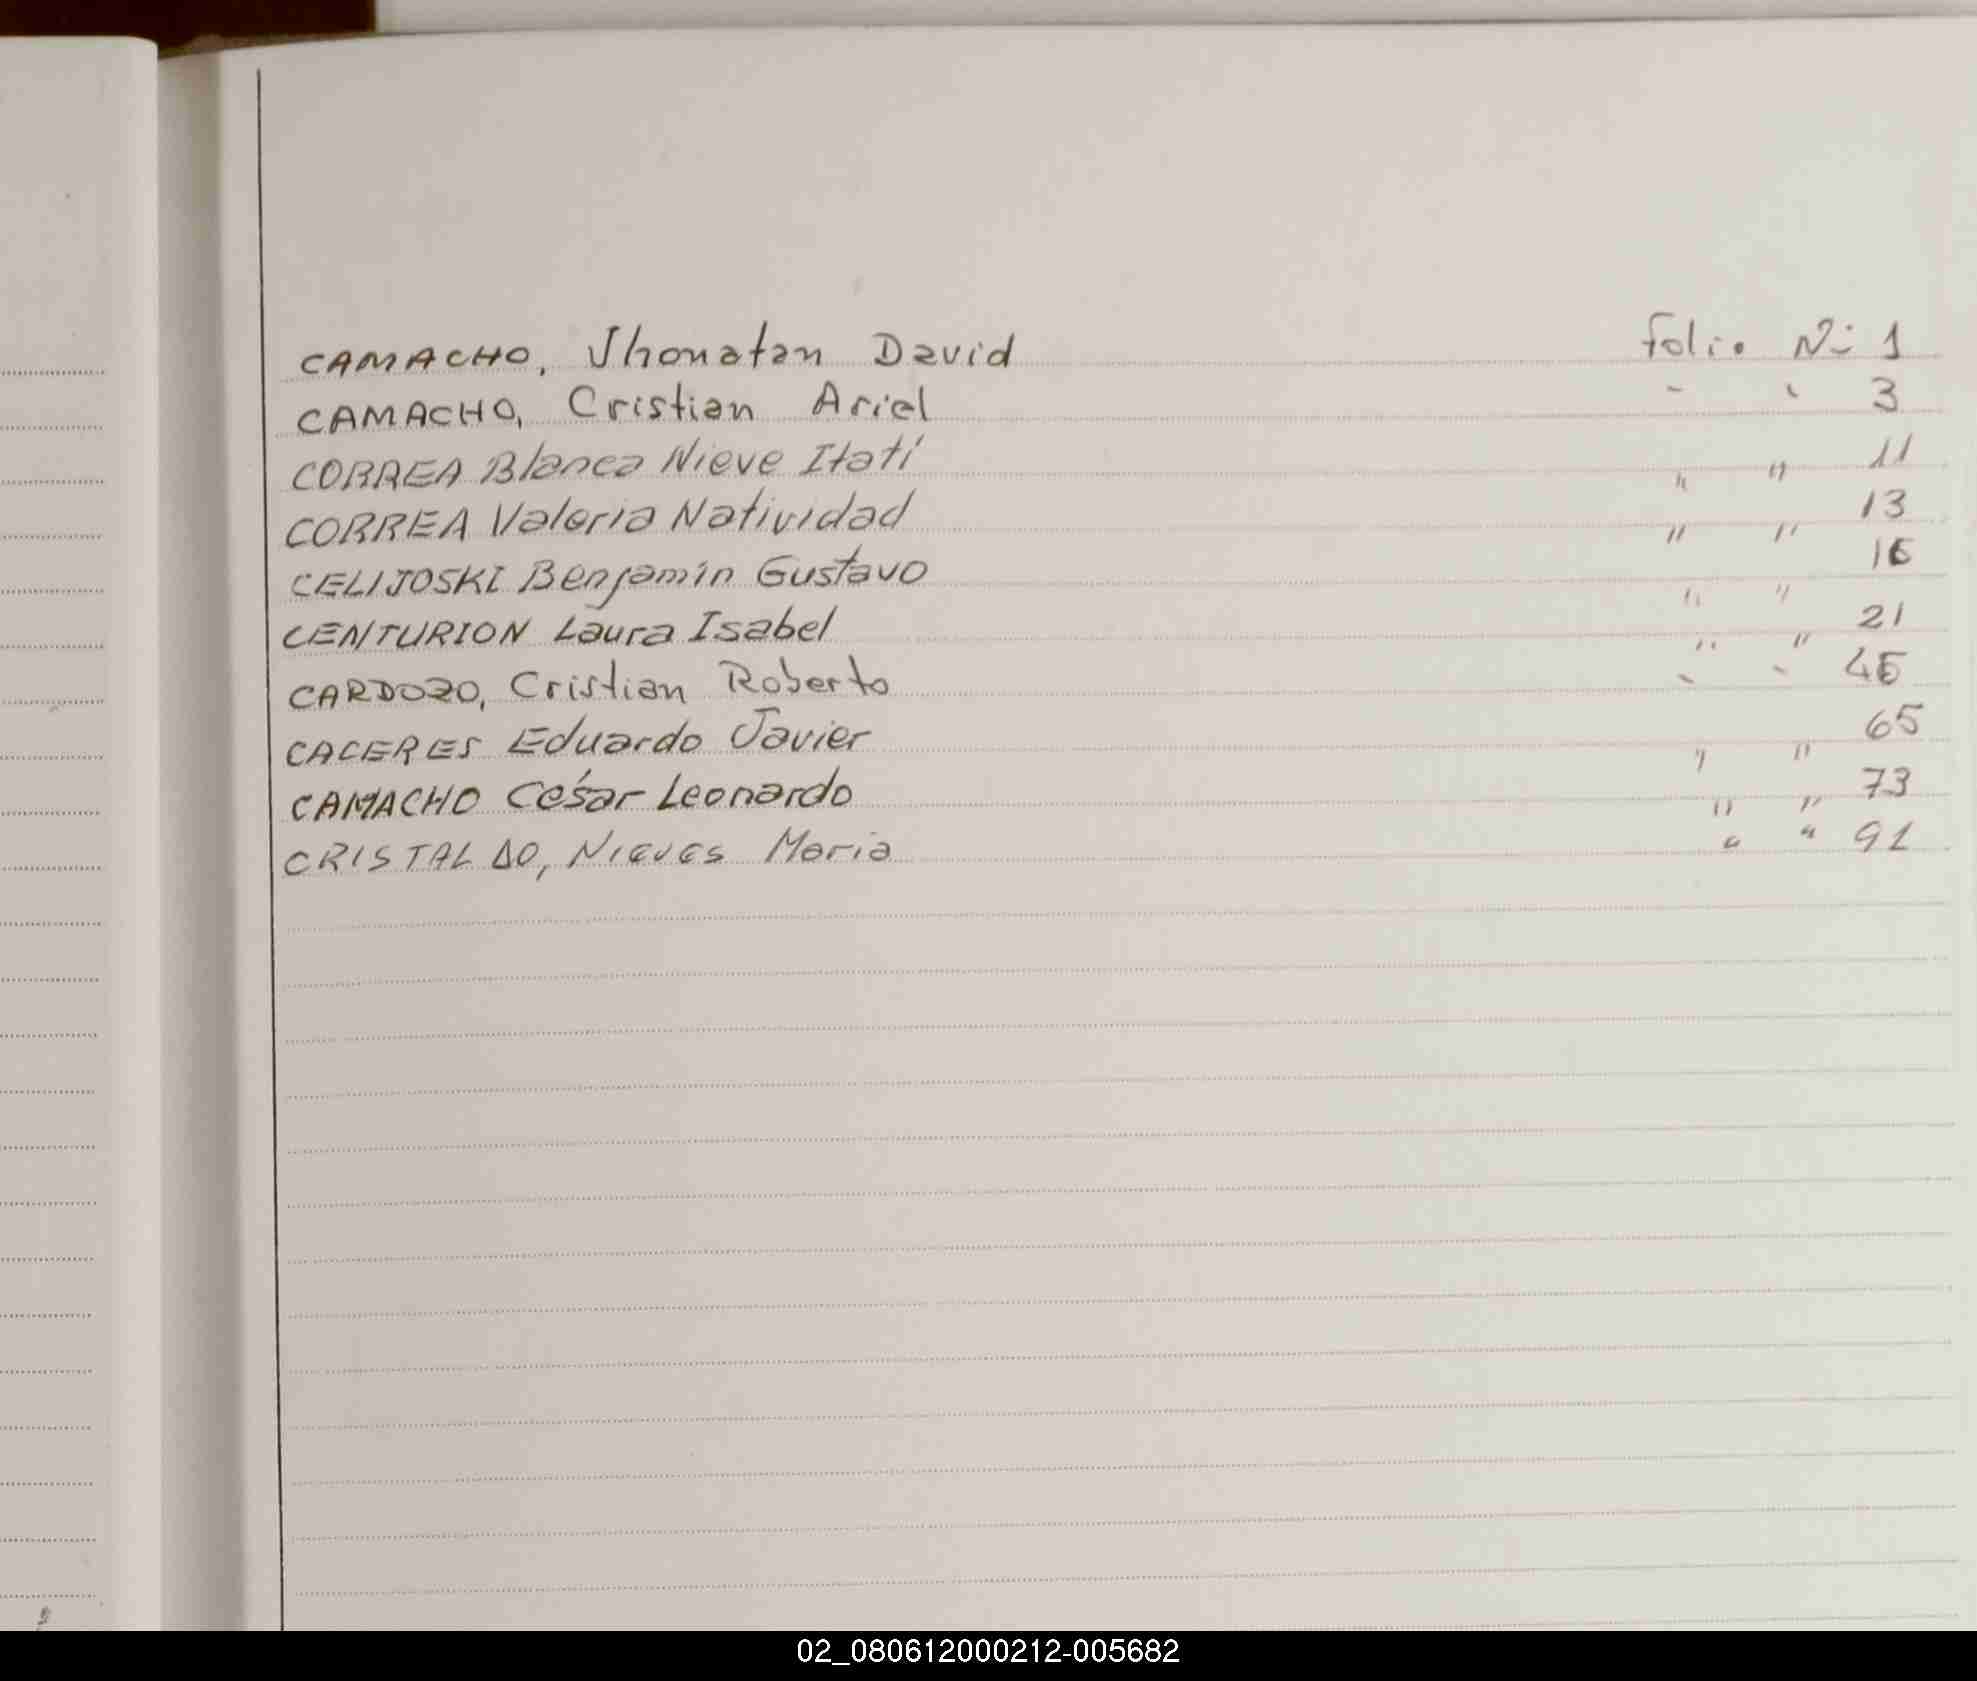 CAMACHO, Jhonatan David Folio Nº 1
CAMACHO, Cristian Ariel " " 3
CORREA Blanca Nieve Itatí " " 11
CORREA Valeria Natividad " " 13
CELIJOSKI Benjamín Gustavo " " 16
CENTURION Laura Isabel " " 21
CARDOZO, Cristian Roberto " "
CACERES Eduardo Javier " " 65
CAMACHO César Leonardo " " 73
CRISTALDO, Nieves Maria " " 91
02_080612000212-005682